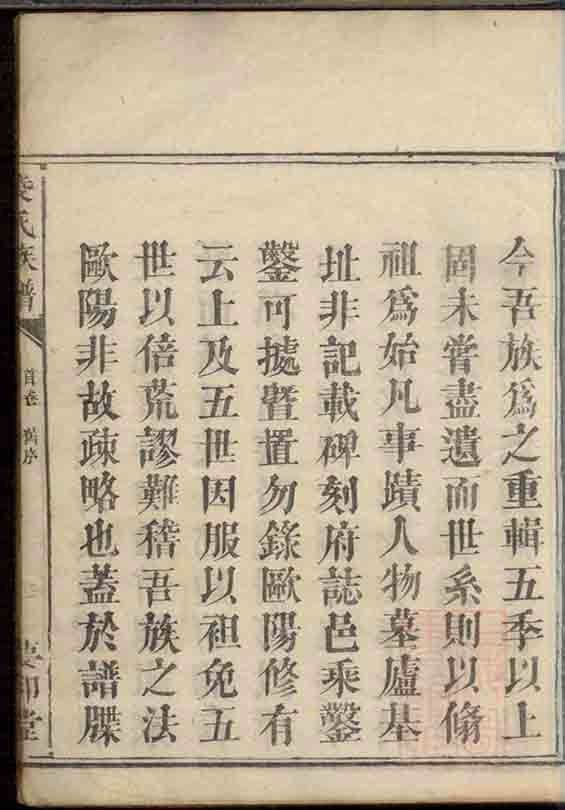 今吾族爲之重輯五季以上
固未嘗盡遺而世系則以脩
祖爲始凡事蹟人物墓廬基
址非記載碑刻府誌邑乘鑿
鑿可據暨置勿錄歐陽修有
云上及五世因服以袒免五
世以倍荒謬難稽吾族之法
歐陽非故疎略也蓋於譜牒
氏族譜
首卷 舊序
堂